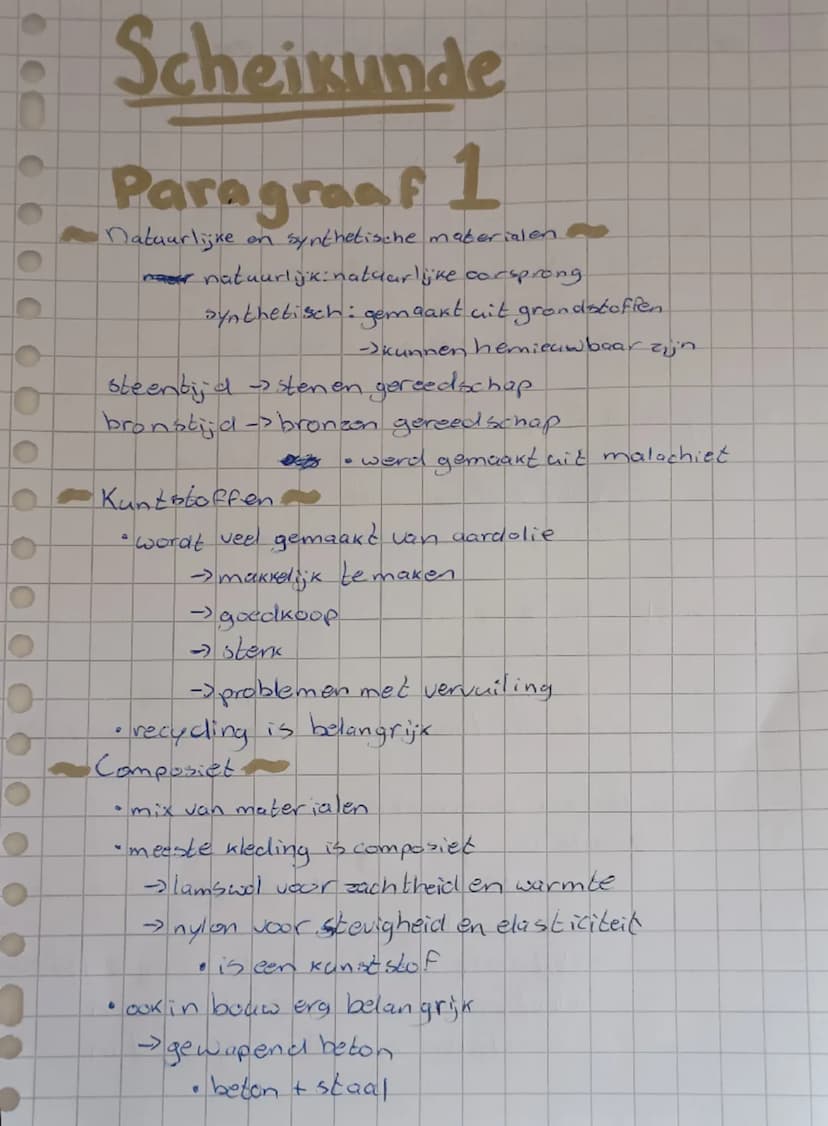 Scheikunde
Paragraaf 1
~ Natuurlijke en synthetische materialen ~
natuurlijk: natuurlijke oorsprong
synthetisch: gemaakt uit grondstoffen
→ kunnen hernieuwbaar zijn
steentijd → stenen gereedschap
bronstijd → bronzen gereedschap
• werd gemaakt uit malachiet
~ Kuntstoffen ~
• wordt veel gemaakt van aardolie
→ makkelijk te maken
→ goedkoop
→ sterk
→ problemen met vervuiling
• recycling is belangrijk
~ Composiet ~
• mix van materialen
• meeste kleding is composiet
→ lamswol voor zachtheid en warmte
→ nylon voor stevigheid en elasticiteit
• is een kunststof
• ook in bouw erg belangrijk
→ gewapend beton
• beton + staal